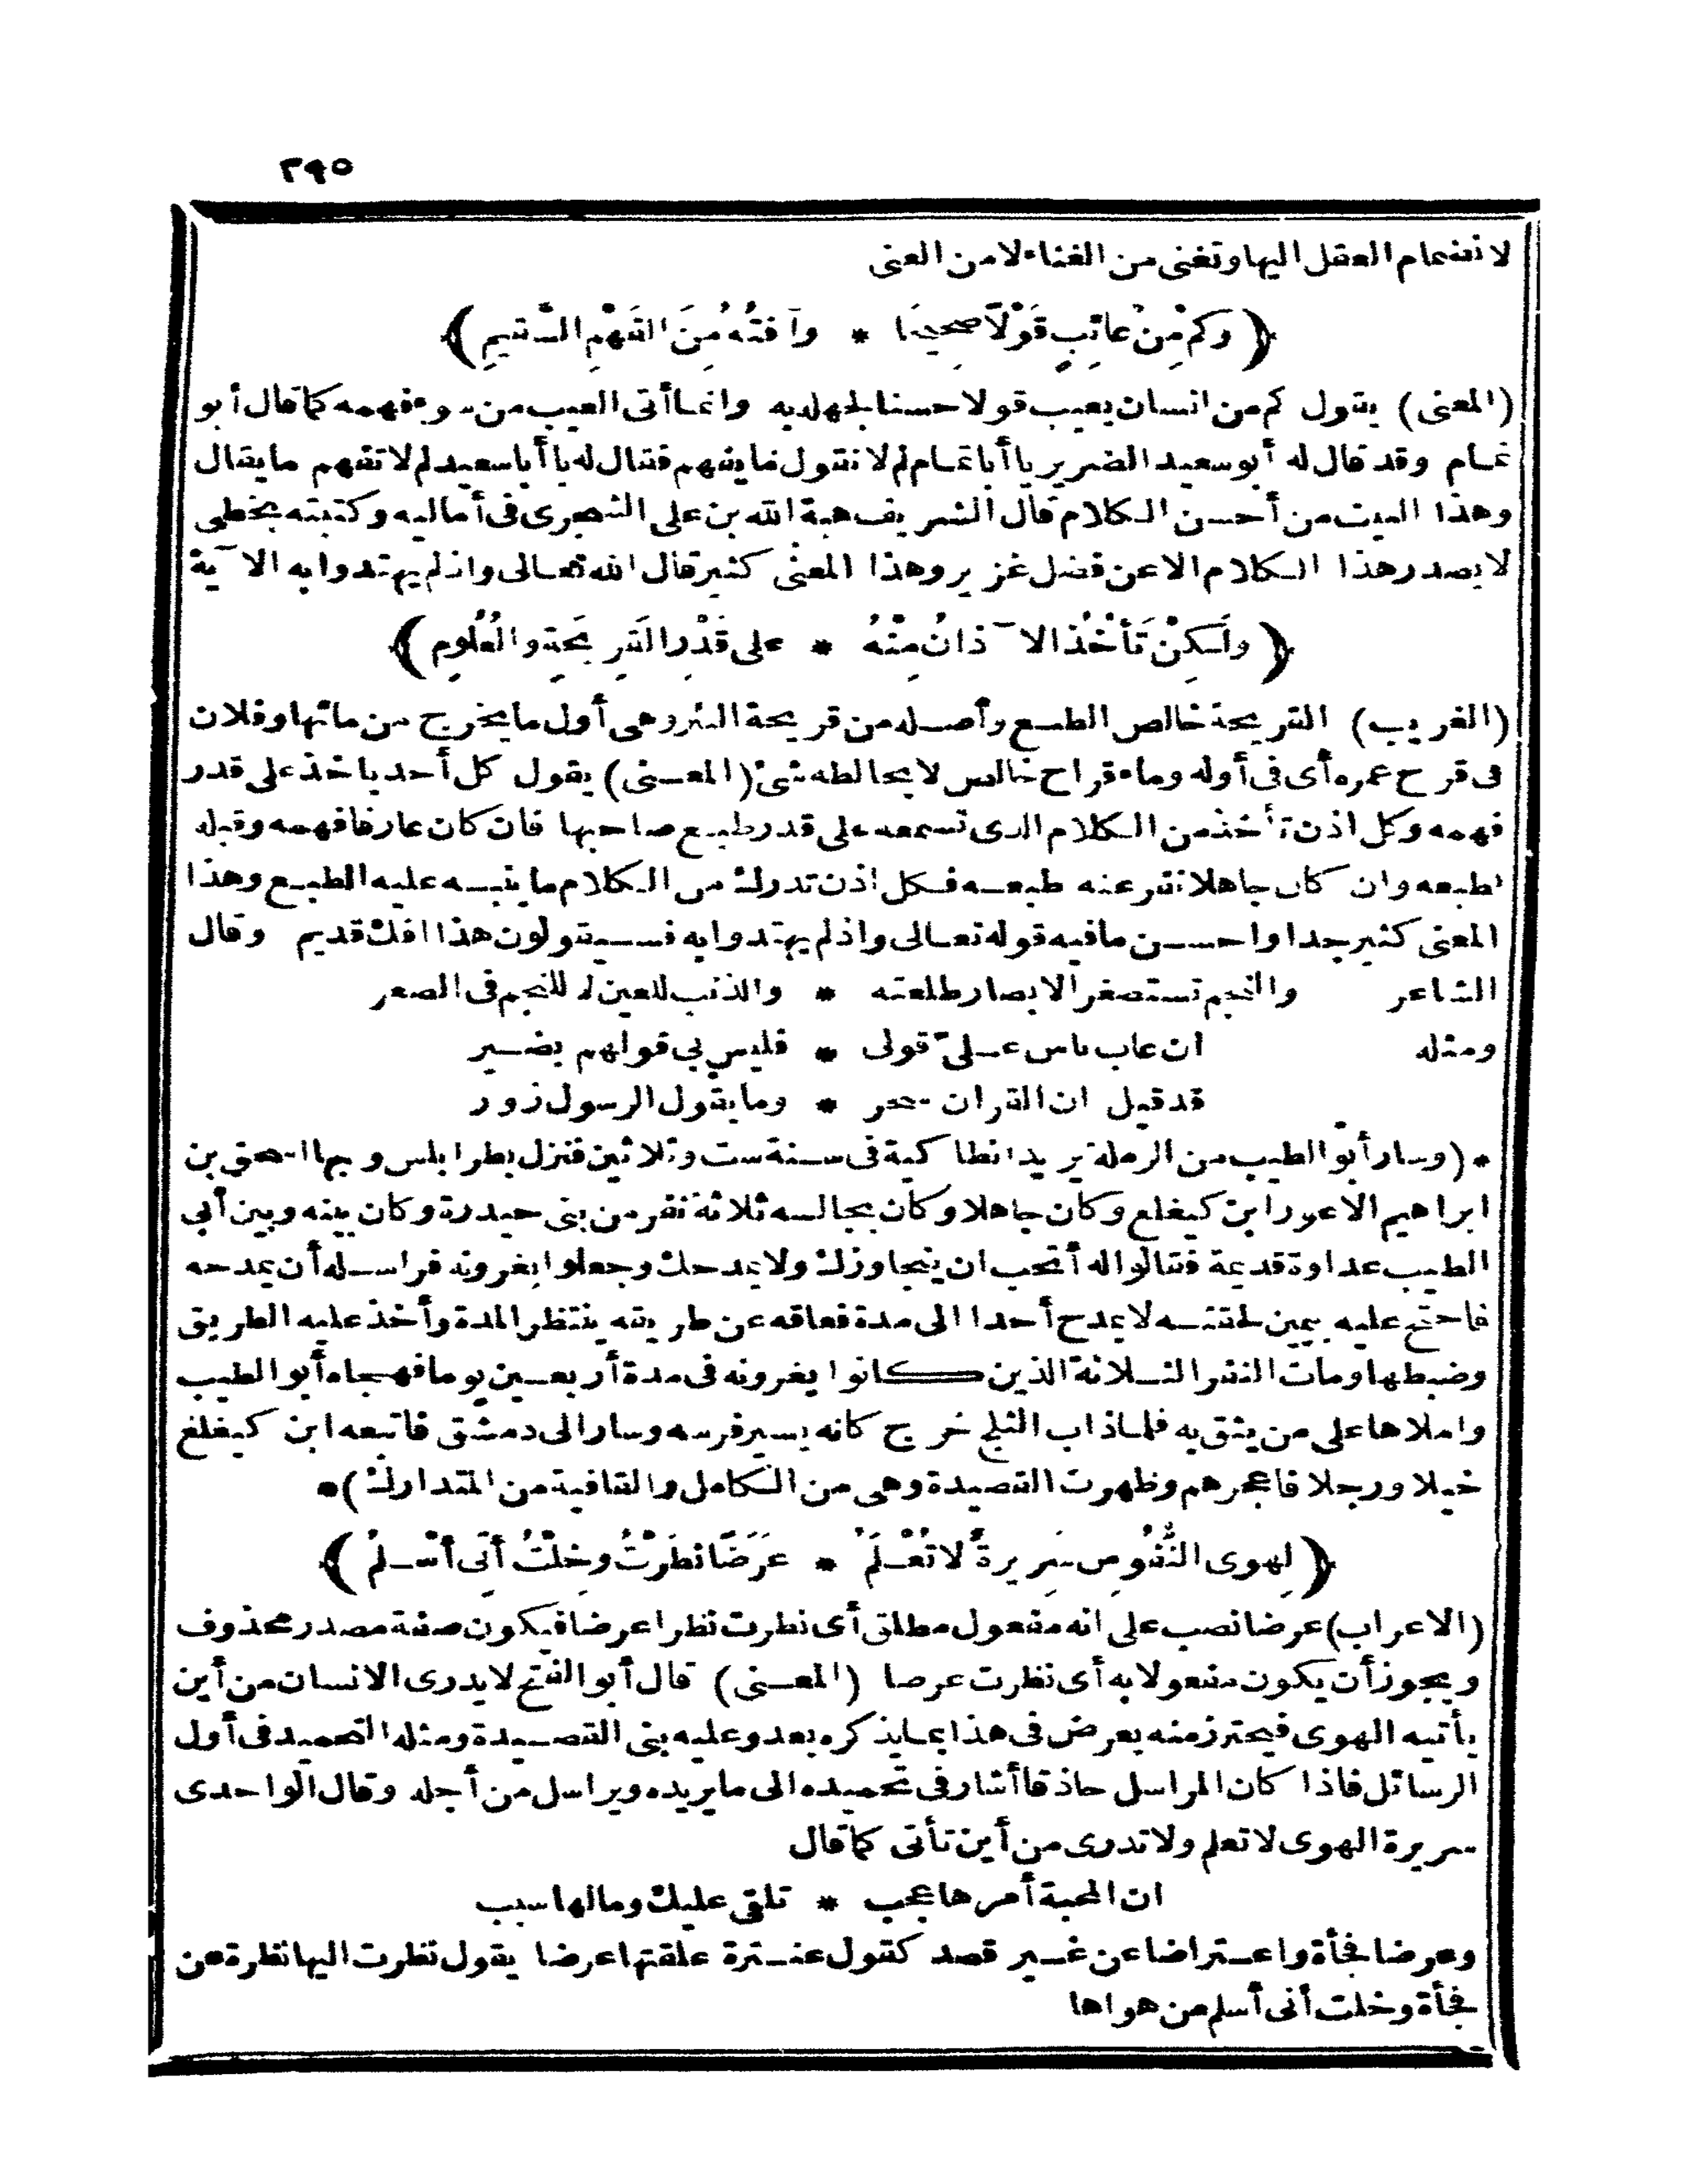 ٢٩٥
لانضمام العقل اليها وتغنى من الغناء لا من الغنى
﴿ وَكَمْ مِنْ عائِبٍ قَوْلًا صَحِيحًا * وآفَتُهُ مِنَ الفَهْمِ السَّقِيمِ ﴾
(المعنى) يقول كم من انسان يعيب قولا حسنا لجهله به وانما أتى العيب من سوء فهمه كما قال أبو
تمام وقد قال له أبو سعيد الضرير يا أبا تمام لم لا تقول ما يفهم فقال له يا أبا سعيد لم لا تفهم ما يقال
وهذا البيت من أحسن الكلام قال الشريف هبة الله بن على الشجرى فى أماليه وكتبته بخطى
لا يصدر هذا الكلام الا عن فضل غزير وهذا المعنى كثير قال الله تعالى واذ لم يهتدوا به الآية
﴿ ولَكِنْ تَأْخُذُ الآذانُ مِنْهُ * على قَدْرِ القَرِيحَةِ والعُلُومِ ﴾
(الغريب) القريحة خالص الطبع وأصله من قريحة البئر وهى أول ما يخرج من مائها وفلان
فى قرح عمره أى فى أوله وماء قراح خالص لا يخالطه شئ (المعنى) يقول كل أحد ياخذ على قدر
فهمه وكل اذن تأخذ من الكلام الذى تسمعه على قدر طبع صاحبها فان كان عارفا فهمه وقبله
لطبعه وان كان جاهلا نفر عنه طبعه فكل اذن تدرك من الكلام ما ينبه عليه الطبع وهذا
المعنى كثير جدا واحسن ما فيه قوله تعالى واذ لم يهتدوا به فسيقولون هذا افك قديم وقال
الشاعر والنجم تستصغر الابصار طلعته * والذنب للعين لا للنجم فى الصغر
ومثله ان عاب ناس علىّ قولى * فليس بى قولهم يضير
قد قيل ان القران سحر * وما يقول الرسول زور
* (وسار أبو الطيب من الرملة يريد انطاكية فى سنة ست وثلاثين فنزل بطرابلس وبها اسحق بن
ابراهيم الاعور ابن كيغلغ وكان جاهلا وكان يجالسه ثلاثة نفر من بنى حيدرة وكان بينه وبين أبى
الطيب عداوة قديمة فقالوا له أتحب ان يتجاوزك ولا يمدحك وجعلوا يغرونه فراسله أن يمدحه
فاحتج عليه بيمين لحقته لا يمدح أحدا الى مدة فعاقه عن طريقه ينتظر المدة وأخذ عليه الطريق
وضبطها ومات النفر الثلاثة الذين كانوا يغرونه فى مدة أربعين يوما فهجاه أبو الطيب
واملاها على من يثق به فلما ذاب الثلج خرج كانه يسير فرسه وسار الى دمشق فاتبعه ابن كيغلغ
خيلا ورجلا فاعجزهم وظهرت القصيدة وهى من الكامل والقافية من المتدارك )*
﴿ لِهوى النُّفُوسِ سَرِيرةٌ لا تُعْلَمُ * عَرَضًا نَظَرْتُ وخِلْتُ أنِّى أَسْلَمُ ﴾
(الاعراب) عرضا نصب على انه مفعول مطلق أى نظرت نظرا عرضا فيكون صفة مصدر محذوف
ويجوز أن يكون مفعولا به أى نظرت عرضا (المعنى) قال أبو الفتح لا يدرى الانسان من أين
يأتيه الهوى فيحترز منه يعرض فى هذا بما يذكره بعد وعليه بنى القصيدة ومثله التحميد فى أول
الرسائل فاذا كان المراسل حاذقا أشار فى تحميده الى ما يريده ويراسل من أجله وقال الواحدى
سريرة الهوى لا تعلم ولا تدرى من أين تأتى كما قال
ان المحبة أمرها عجب * تلقى عليك وما لها سبب
وعرضا فجأة واعتراضا عن غير قصد كقول عنترة علقتها عرضا يقول نظرت اليها نظرة عن
فجأة وخلت أنى أسلم من هواها